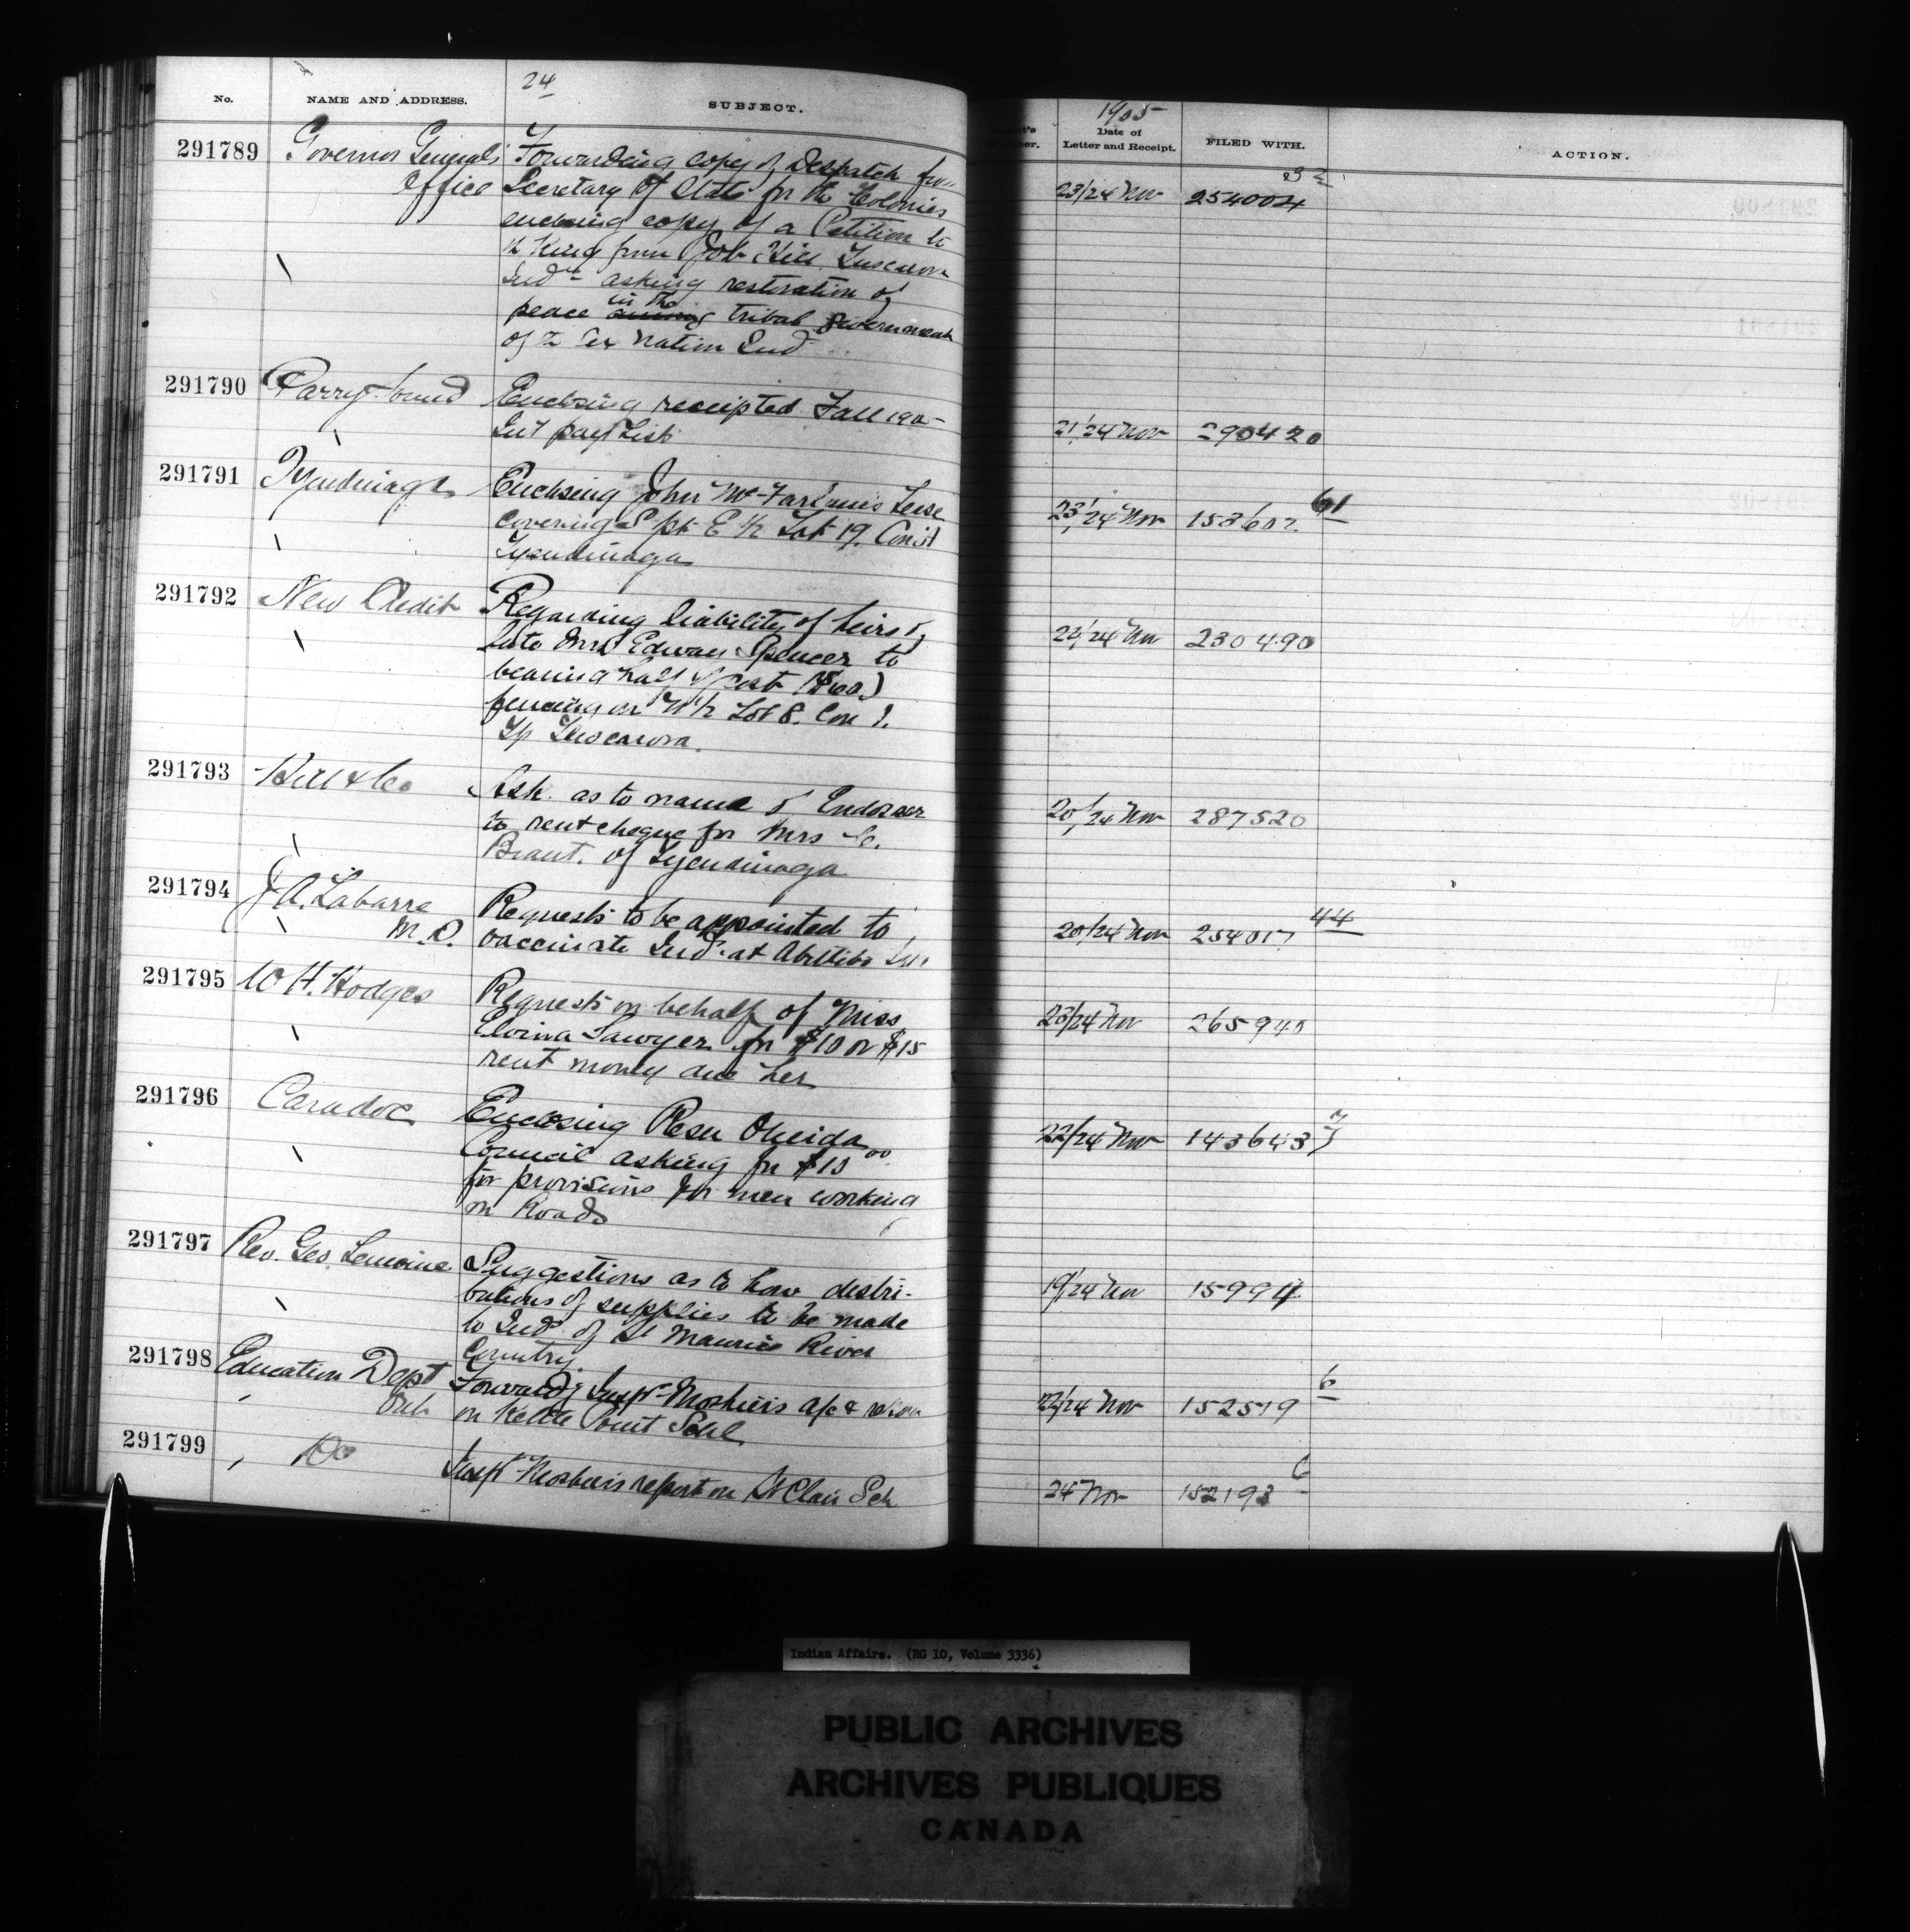 24
No. NAME AND ADDRESS. SUBJECT.
1905
Date of Letter and Receipt. FILED WITH. ACTION.
291789 Governor Generals Forwarding copy of Despatch from
Office Secretary of State for the Colonies 23/24 Nov 254004
enclosing copy of a Petition to
King from Job Hill Tuscarora
Inds asking restoration of
peace in the tribal Government
of Six Nation Inds
291790 Parry Sound Enclosing receipted Fall 190
Int pay list 21/24 Nov 290420
291791 Tyendinaga Enclosing John McFarlane's Lease
covering S pt E ½ Lot 19. Con 1 23/24 Nov 153602 61
Tyendinaga
291792 New Credit Regarding liability of heirs of
late Mrs Edward Spencer to 22/24 Nov 230490
bearing half of cost
fencing on N½ Lot 8. Con 1.
Tp Tuscarora.
291793 Hill & Co Ask as to name of Endorser
to rent cheque for Mrs C. 20/24 Nov 287520
Brant. of Tyendinaga
291794 J A. Labarre Requests to be appointed to 44
M.D. vaccinate Inds at Abittibi 20/24 Nov 254017
291795 W H. Hodges Requests on behalf of Miss
Elvina Sawyer for $10 or $15 23/24 Nov 265940
rent money due her
291796 Caradoc Enclosing Resn Oneida
Council asking for $10 00 22/24 Nov 143643
for provisions for men working
on Roads
291797 Rev. Geo. Lemoine Suggestions as to how distri-
butions of supplies to be made 19/24 Nov 15994
to Inds of St Maurice River
Country.
291798 Education Dept Forwardg Inspr Moshier's a/c & 6
Ont. on Kettle Point Schl 22/24 Nov 152519
291799 Do Inspr Moshier's report on St Clair Sch 24 Nov 152193 6
Indian Affairs. (RG 10, Volume 3336)
PUBLIC ARCHIVES
ARCHIVES PUBLIQUES
CANADA